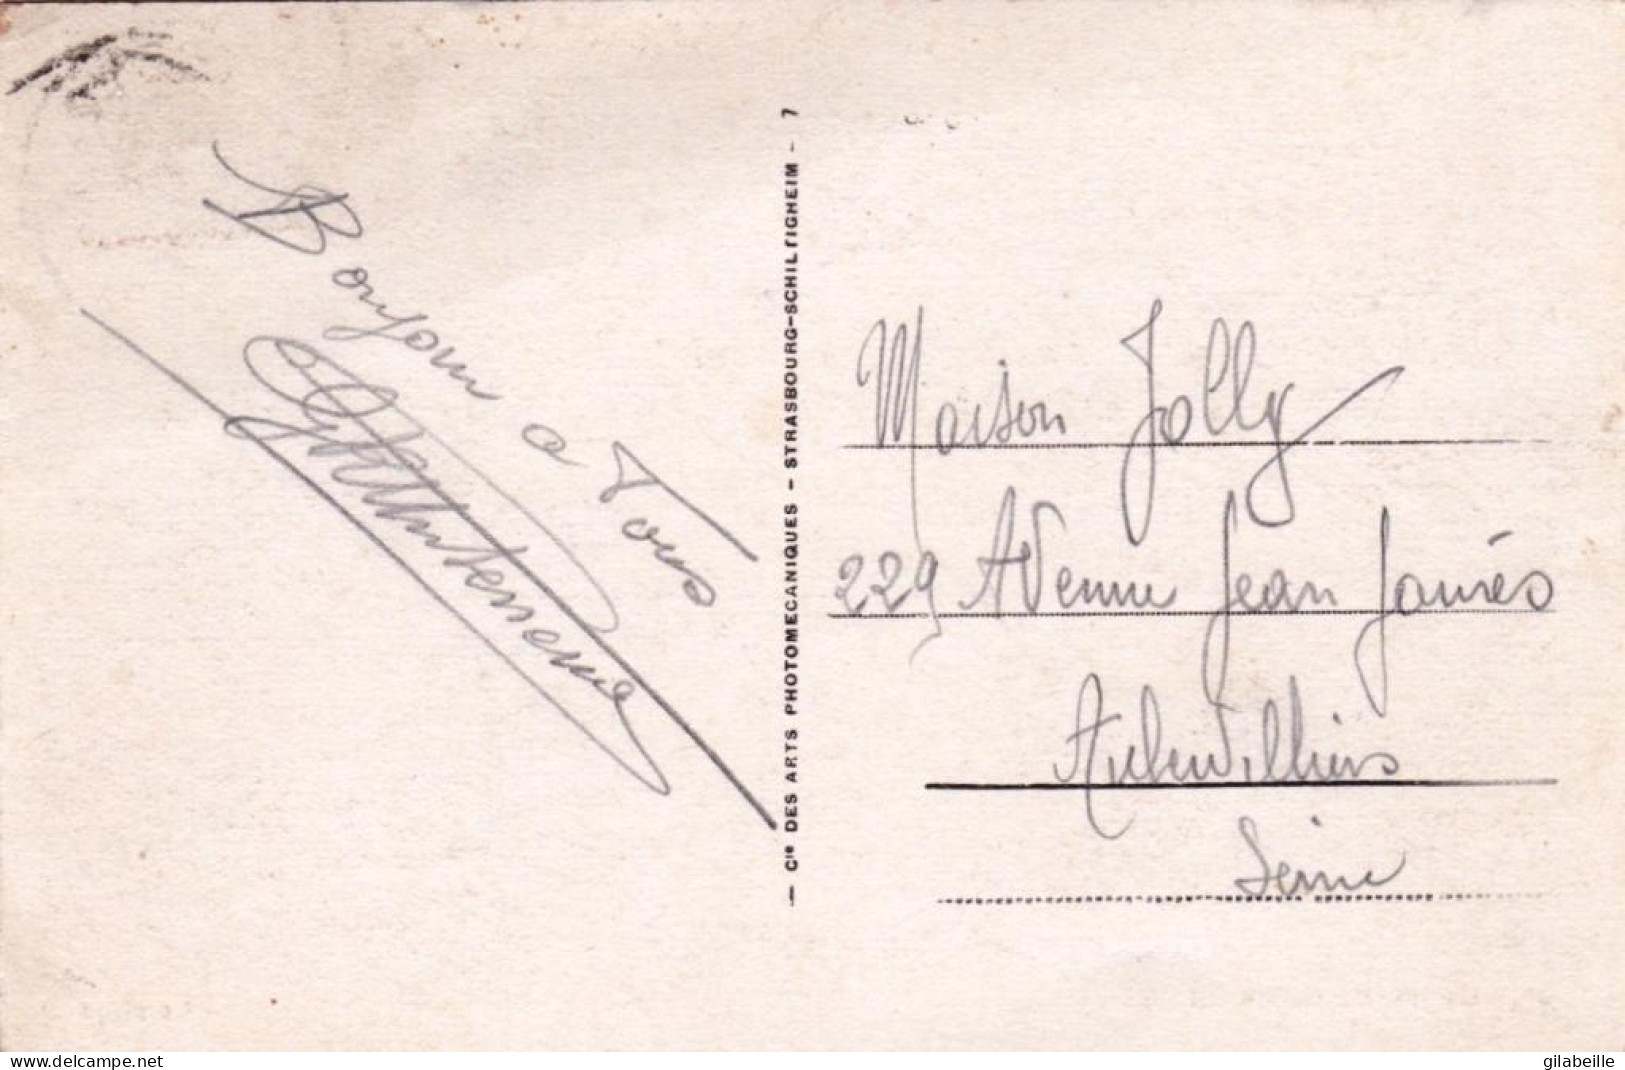 Bonjour a Tous
— Cie DES ARTS PHOTOMECANIQUES — STRASBOURG-SCHILTIGHEIM - 7
Maison Jolly
229 Avenue Jean Jaurès
Aubervilliers
Seine
www.delcampe.net
gilabeille